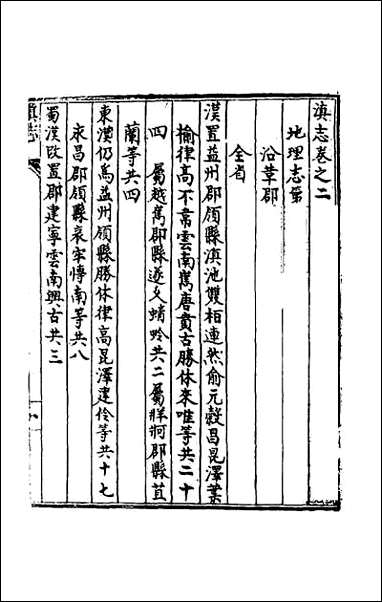 滇志卷之二
地理志第
沿革郡
全省
漢置益州郡領縣滇池雙柏連然俞元穀昌昆澤葉
榆律高不韋雲南嶲唐賁古勝休來唯等共二十
四　屬越嶲郡縣遂久蜻蛉共二屬牂牁郡縣苴
蘭等共四
東漢仍爲益州領縣勝休律高昆澤建伶等共十七
永昌郡領縣哀牢博南等共八
蜀漢改置郡建寧雲南興古共三